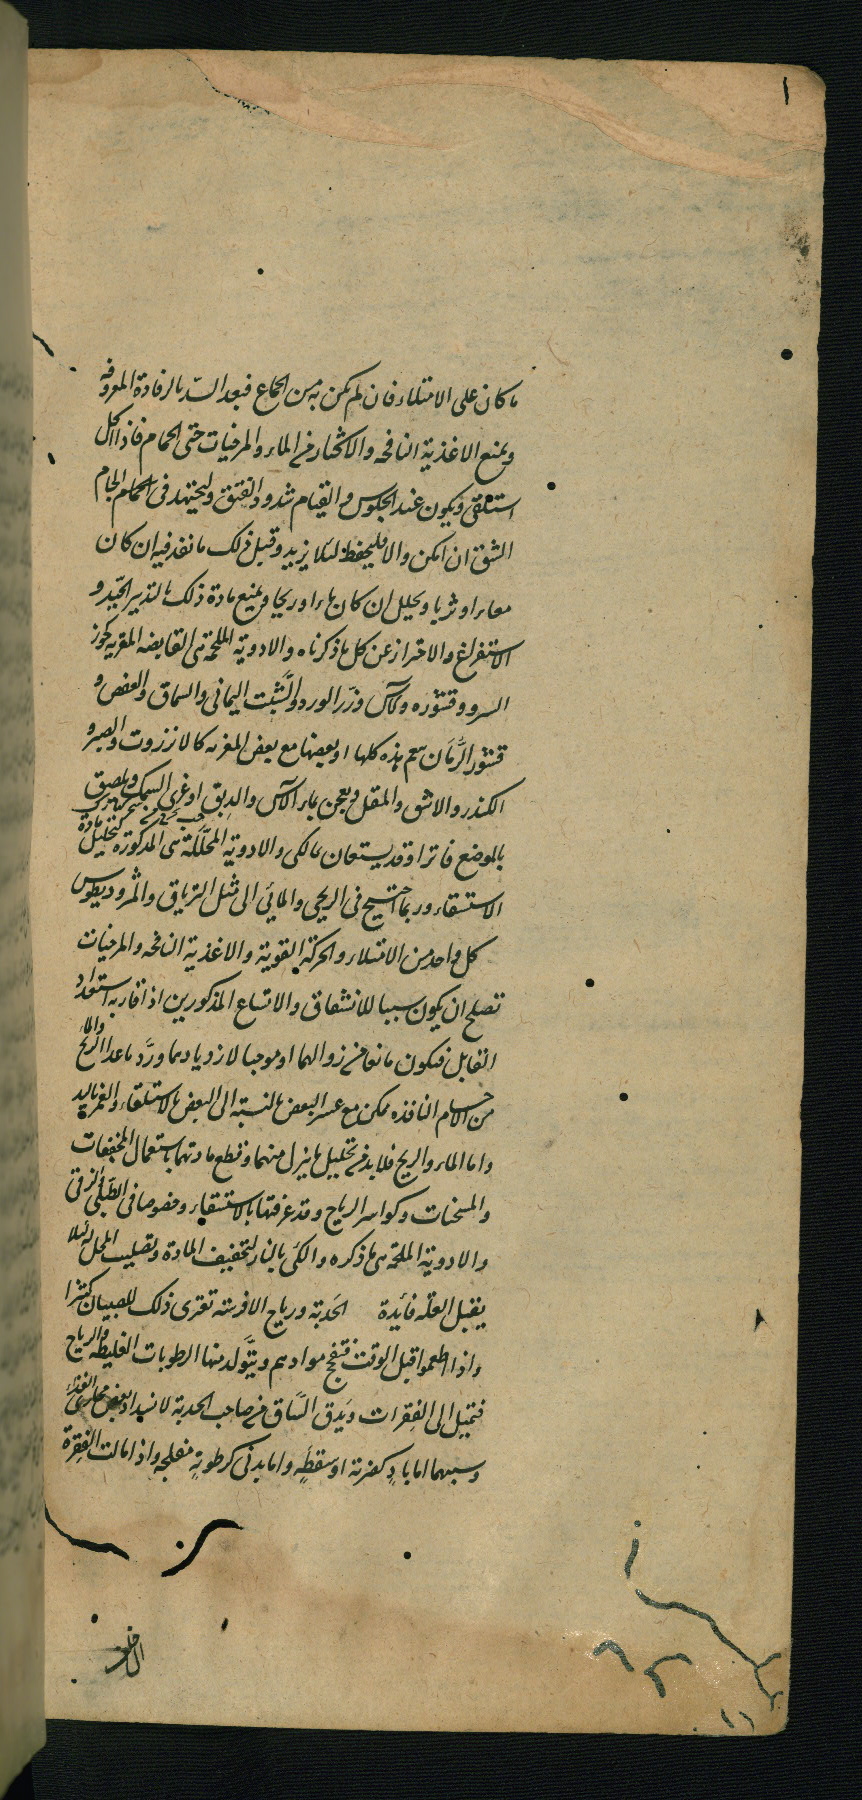 ١
ما كان على الامتلاء فان لم يكن به من الجماع فبعد الشد بالرفادة المعروفه
ويمنع الاغذية النافخه والاكثار من الماء والمرخيات حتى الحمام فاذا اكل
استلقى ويكون عند الجلوس والقيام مشدود الفتق وليجتهد فى الحام
الشق ان امكن والا فليحفظ لئلا يزيد وقبل ذلك ما نفد فيه ان كان
معاء او ثربا ويحلل ان كان ماء او ريحا ويمنع مادة ذلك بالتدبير الجيد و
الاستفراغ والاحتراز عن كل ما ذكرناه والادوية الملحمة هى القابضه المغريه كجوز
السرو وقشوره والآس وزر الورد والشبت اليمانى والسماق والعفص و
قشور الرمان نعم هذه كلها او بعضها مع بعض المغريه كالانزروت والصبر و
الكندر والاشق والمقل ويعجن بماء الآس والدبق او غرى السمك ويلصق
بالموضع فاترا وقد يستعان بالكى والادوية المحللة هى المذكوره لتحليل مادة
الاستسقاء وربما احتيج فى الريحى والمائى الى مثل الترياق والمثروديطوس
كل واحد من الامتلاء والحركة القوية والاغذية النافخه والمرخيات
تصلح ان يكون سببا للانشقاق والاتساع المذكورين اذا قاربه استعداد
القابل فيكون مانعا من زوالهما او موجبا لازديادهما ورد ما عدا الريح والماء
من الاجسام النافذه ممكن مع عسر البعض بالنسبة الى البعض بالاستلقاء والغمز باليد
واما الماء والريح فلا بد من تحليل ما ينزل منهما وقطع مادتهما باستعمال المجففات
والمسخنات وكواسر الرياح وقد عرفتها بالاستسقاء وخصوصا فى الطبلى والزقى
والادوية الملحمة هى ما ذكره والكى بالنار لتجفيف المادة وتصليب المحل لئلا
يقبل العله فائدة الحدبة ورياح الافرسه تعترى ذلك للصبيان كثيرا
واذا اطعموا قبل الوقت فتفج موادهم ويتولد منها الرطوبات الغليظه والرياح
فتميل الى الفقرات ويدق الساق من صاحب الحدبة لانسداد بعض مجارى الغذاء
وسببهما اما باد كضربة او سقطة واما بدنى كرطوبة مفلجه واذا مالت الفقرة